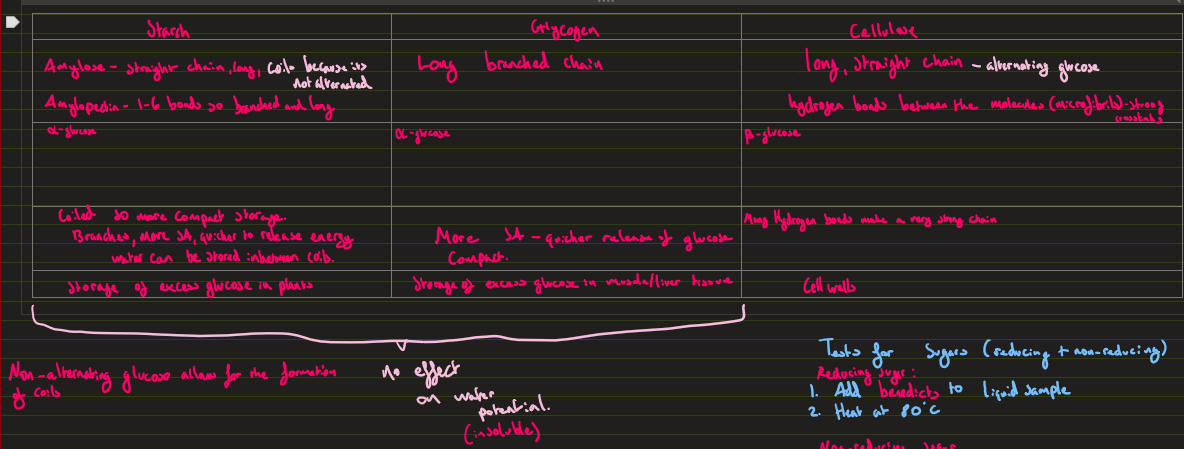 Starch
Glycogen
Cellulose
Amylose - straight chain, long, coils because its
not alternated
Long branched chain
Long, straight chain - alternating glucose
Amylopectin - 1-6 bonds so branched and long
hydrogen bonds between the molecules (microfibrils) - strong
crosslinks
α-glucose
α-glucose
β-glucose
Coiled so more compact storage.
Branches, more SA, quicher to release energy
water can be stored inbetween coils.
More SA - quicher release of glucose
Compact.
Many Hydrogen bonds make a very strong chain
Storage of excess glucose in plants
Storage of excess glucose in muscle/liver tissue
Cell walls
Non-alternating glucose allows for the formation
of coils
no effect
on water
potential.
(insoluble)
Tests for Sugars (reducing + non-reducing)
Reducing sugar:
1. Add benedicts to liquid sample
2. Heat at 80°C
Non-reducing sugar